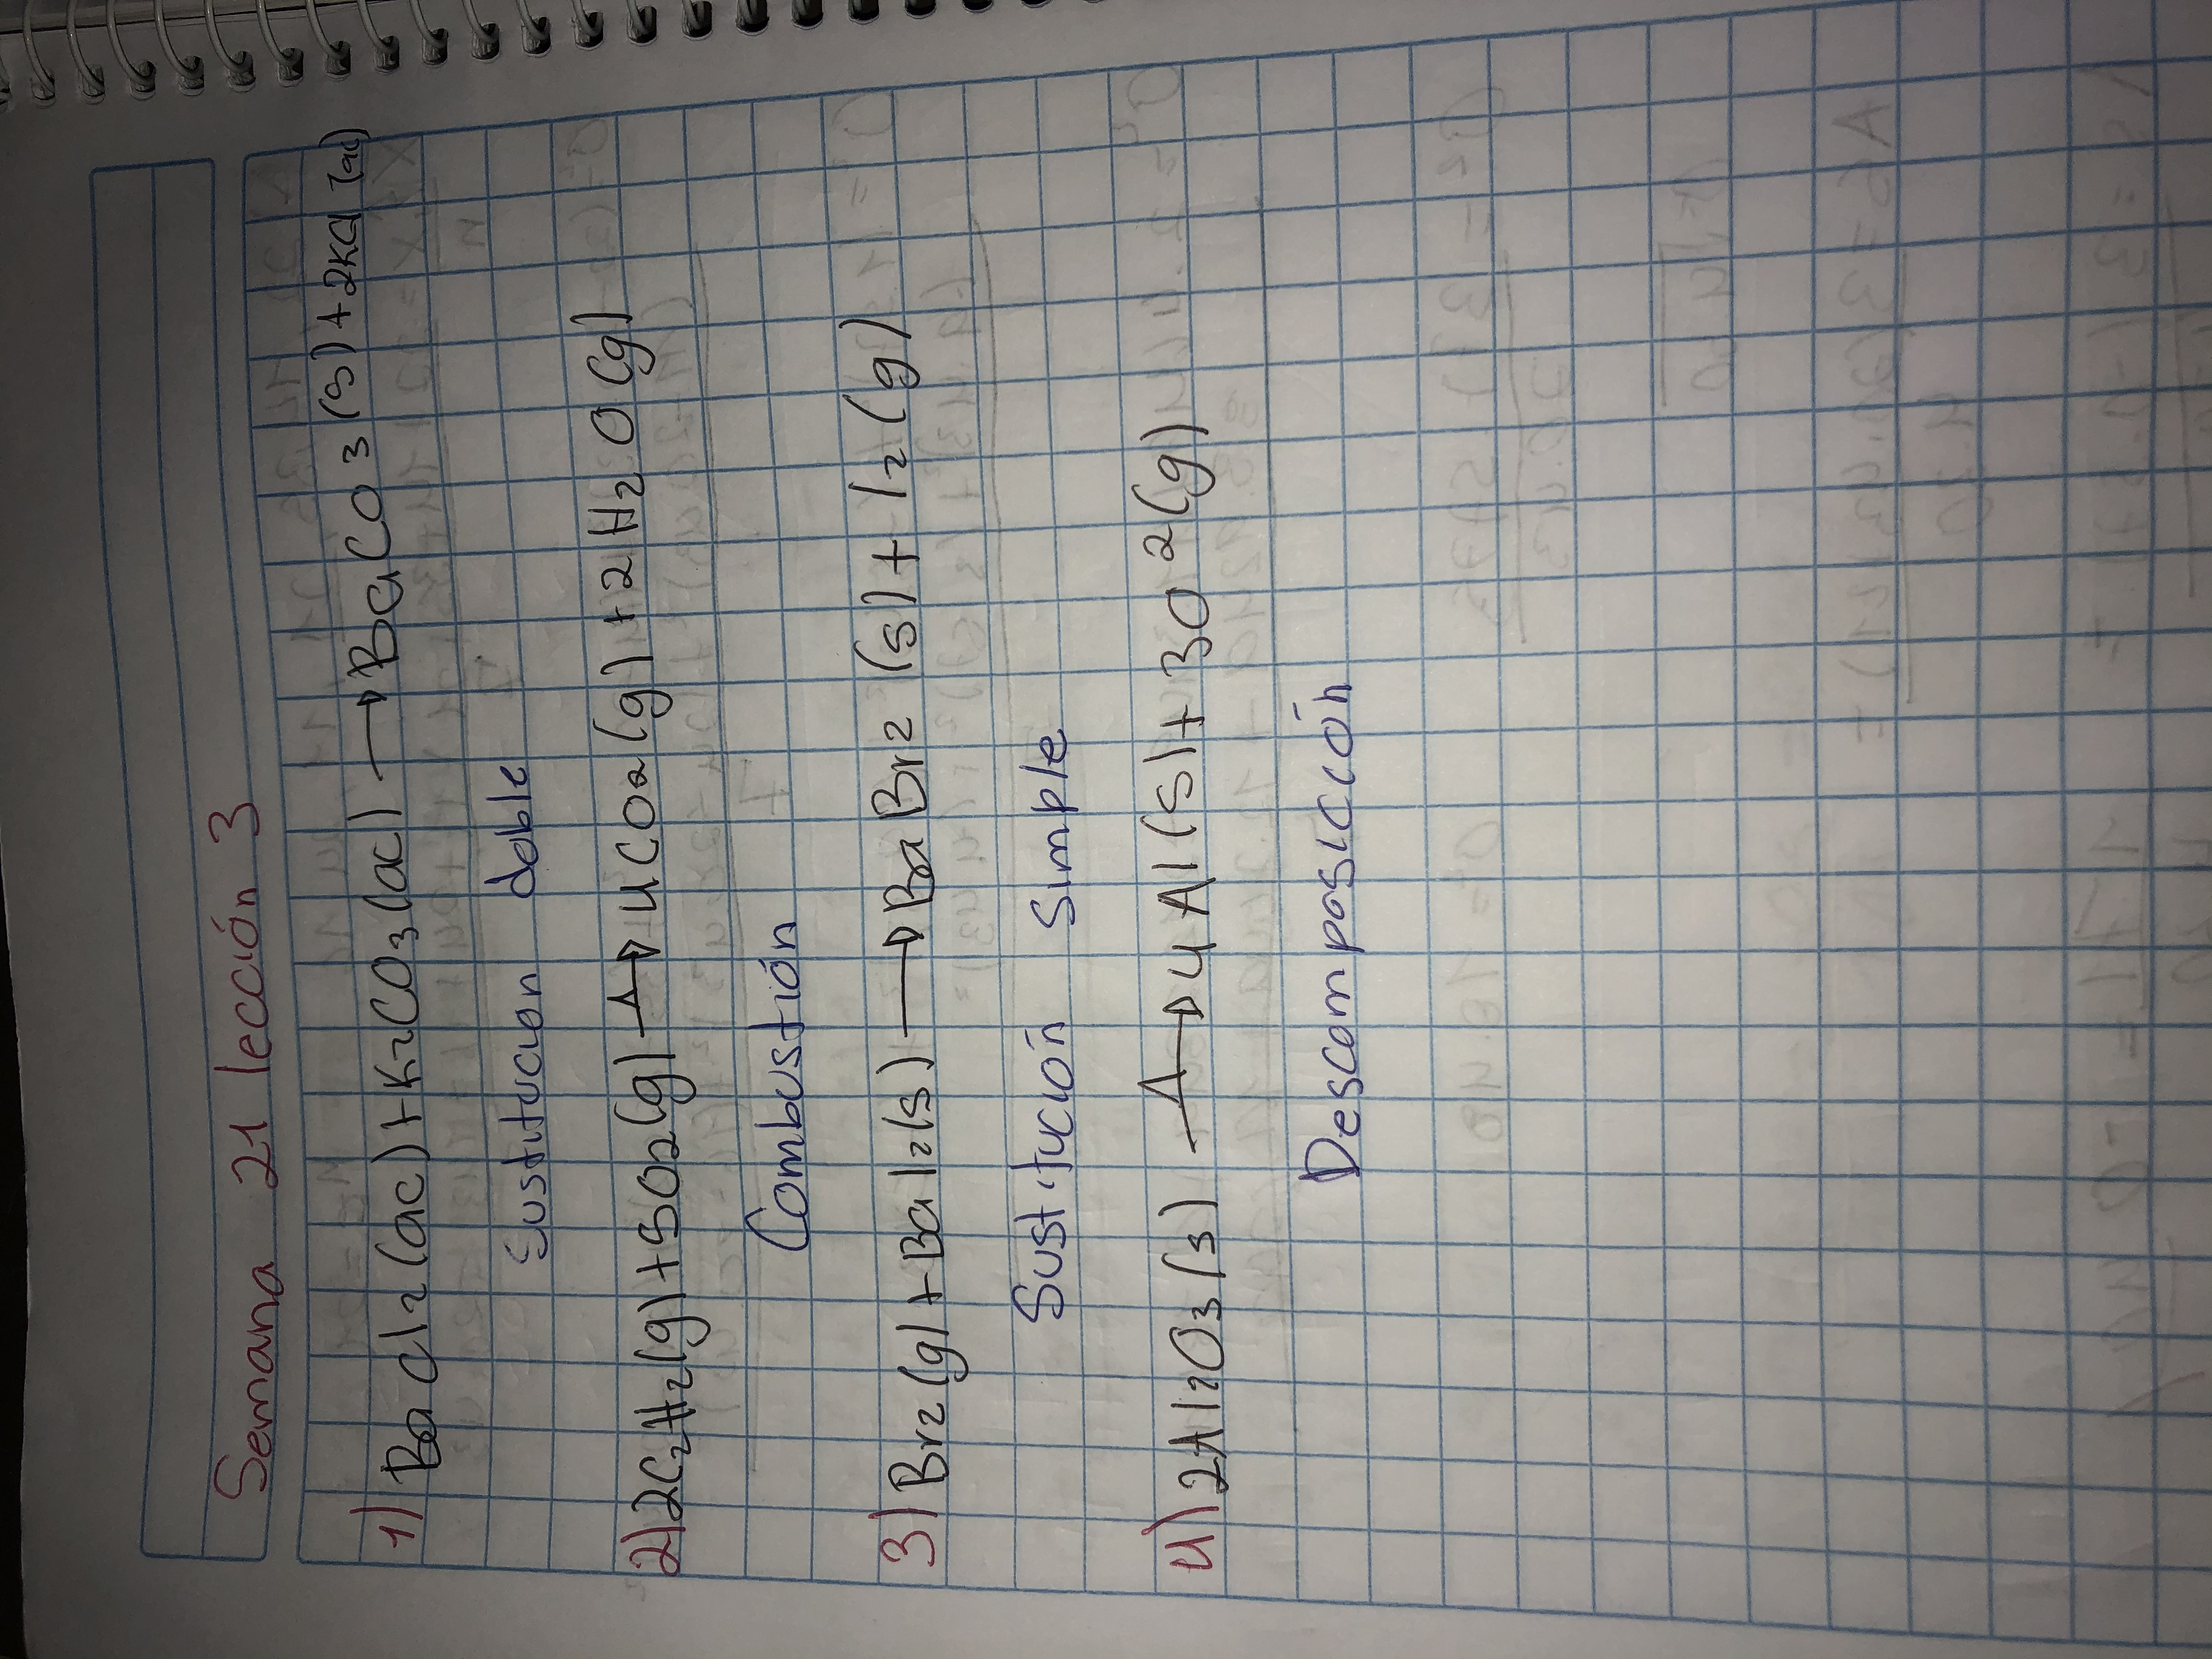 Semana 21 lección 3
1) BaCl₂(ac)+K₂CO₃(ac) → BaCO₃(s)+2KCl (ac)
Sustitucion doble
2) 2C₂H₂(g)+5O₂(g) Δ→ 4CO₂(g)+2H₂O(g)
Combustión
3) Br₂(g)+BaI₂(s) → BaBr₂(s)+I₂(g)
Sustitución Simple
4) 2Al₂O₃(s) Δ→ 4Al(s)+3O²(g)
Descomposición